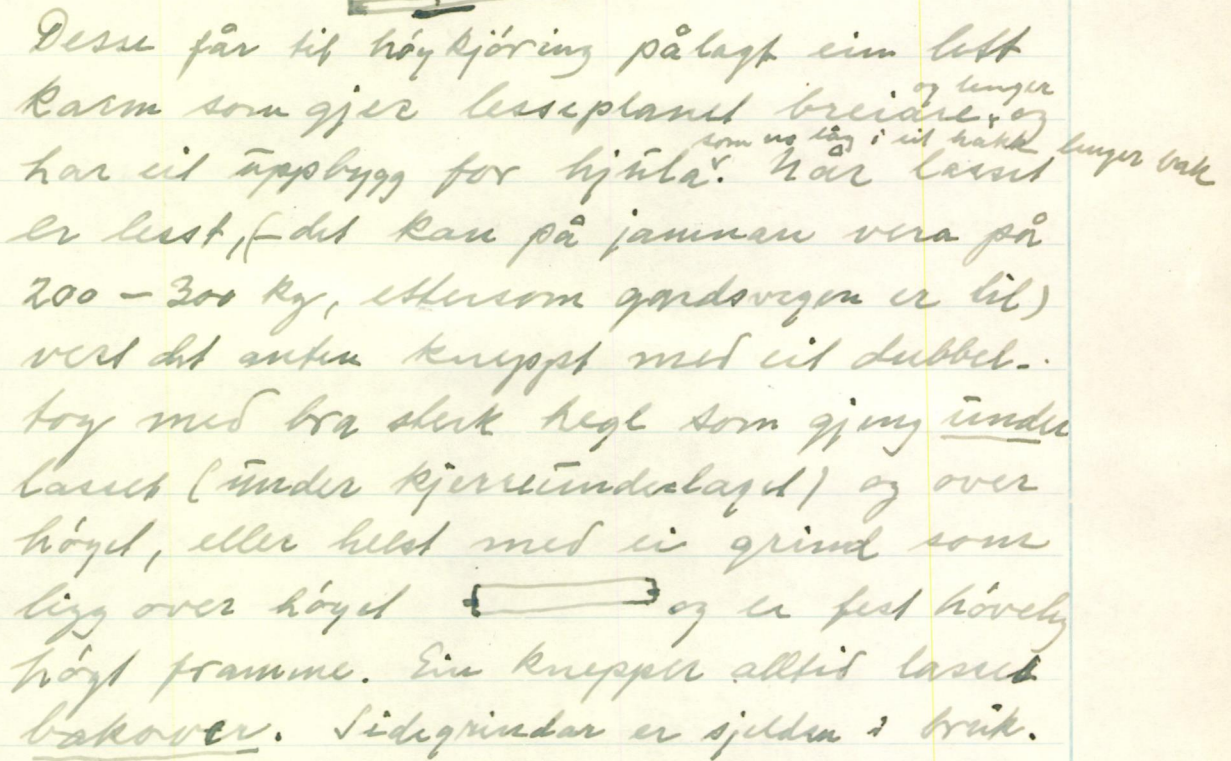 Desse får til høykjøring pålagt ein lett
og lenger
karm som gjer lesseplanet breidre, og
som no låg i eit hakk lenger bak
har eit uppbygg for hjula. Når lasset
er lesst, (– det kan på jamnan vera på
200 – 300 kg, ettersom gardsvegen er til)
vert det anten kneppt med eit dubbel-
tog med bra sterk hegl som gjeng under
lasset (under kjerreunderlaget) og over
høyet, eller helst med ei grind som
ligg over høyet og er fest høveleg
høgt framme. Ein knepper alltid lasset
bakover. Sidegrindar er sjelden i bruk.